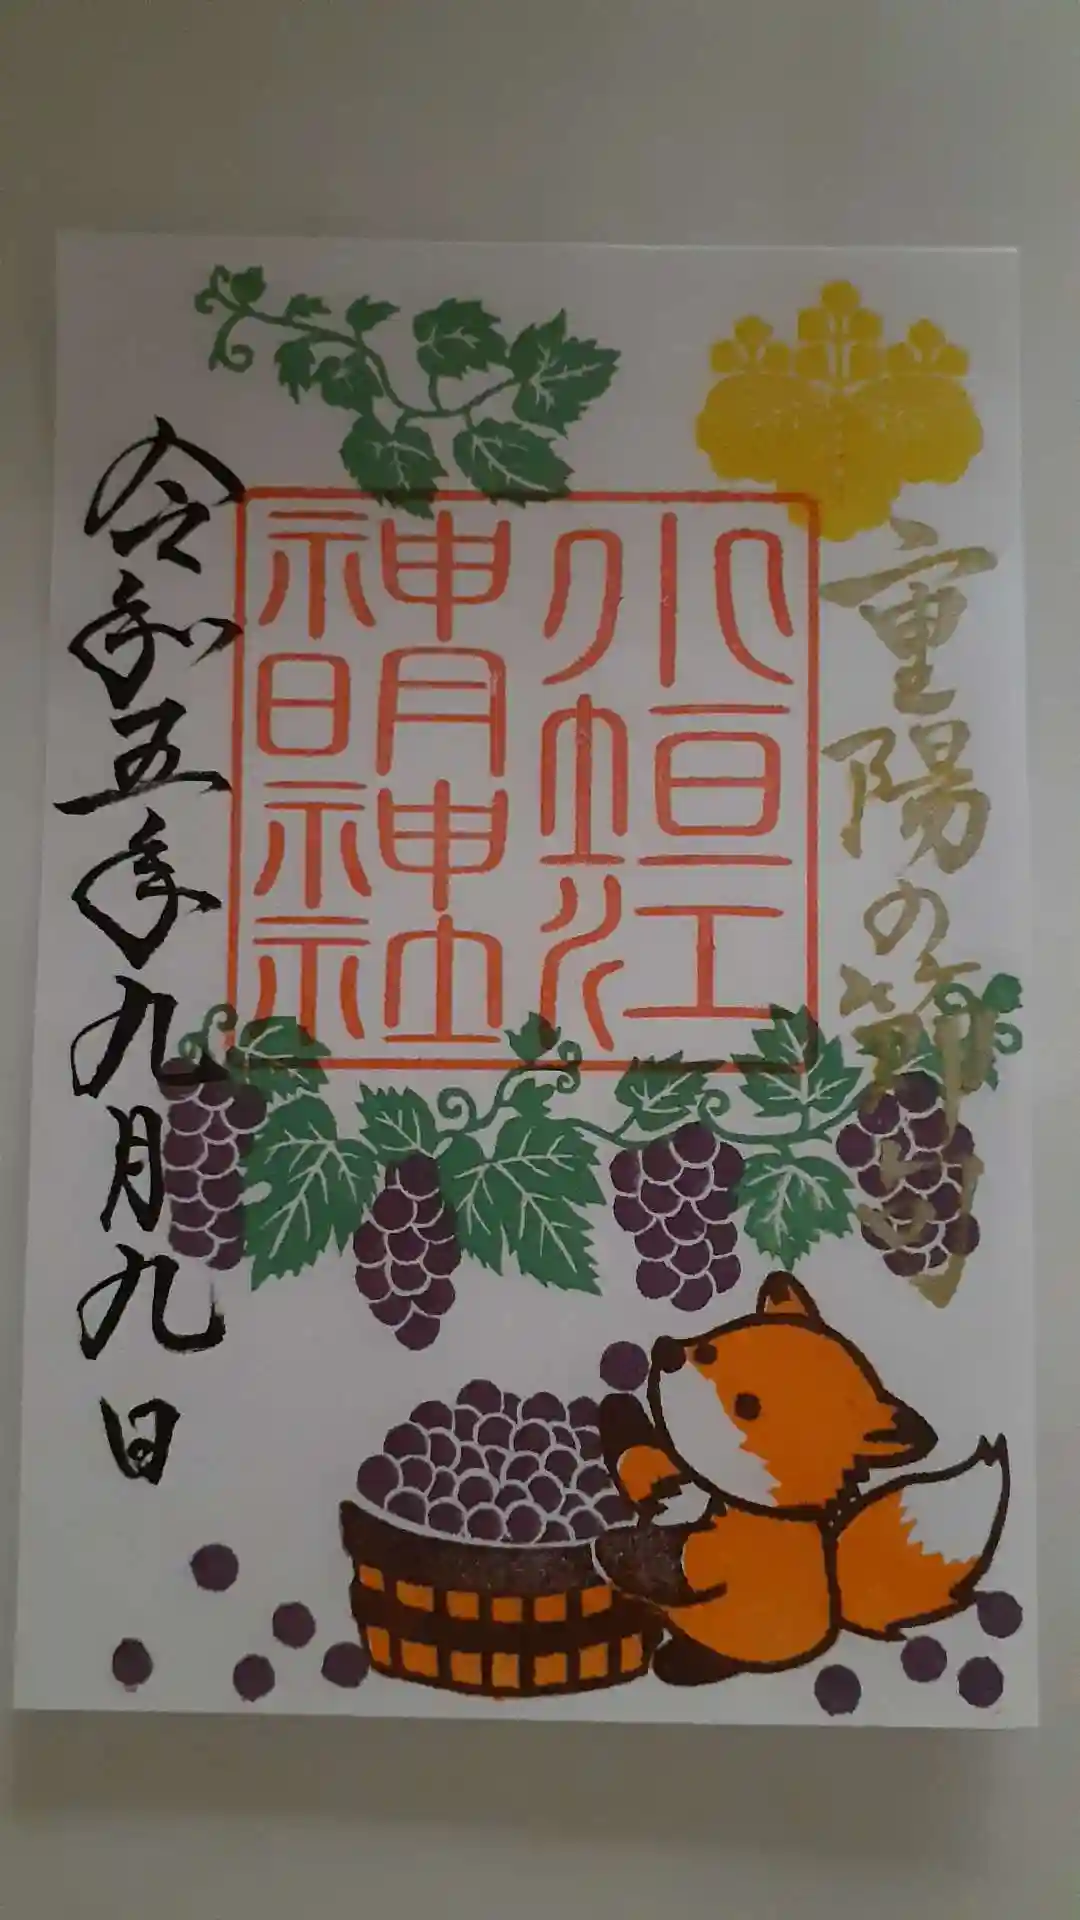 重陽の節句
小垣江
神明神社
令和五年九月九日